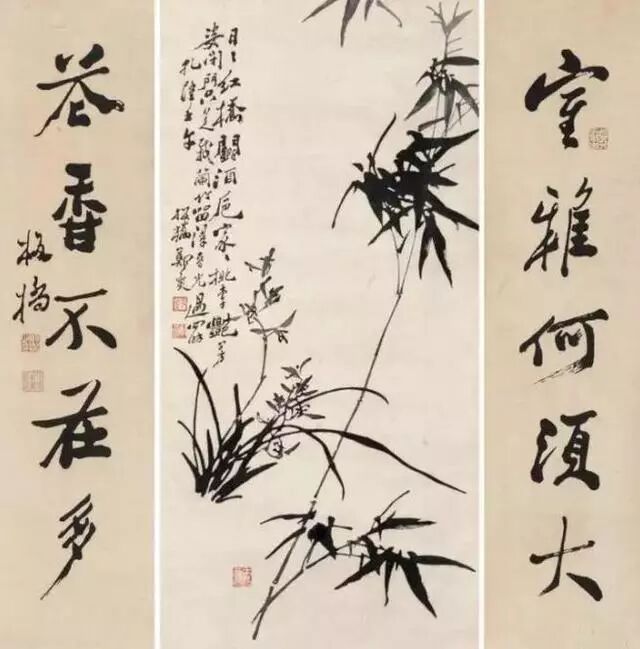 室雅何須大
日〻紅橋鬪酒卮家〻桃李艷芳
姿閉門只是栽蘭竹留得春光過四時
乾隆壬午
板橋鄭燮
花香不在多
板橋